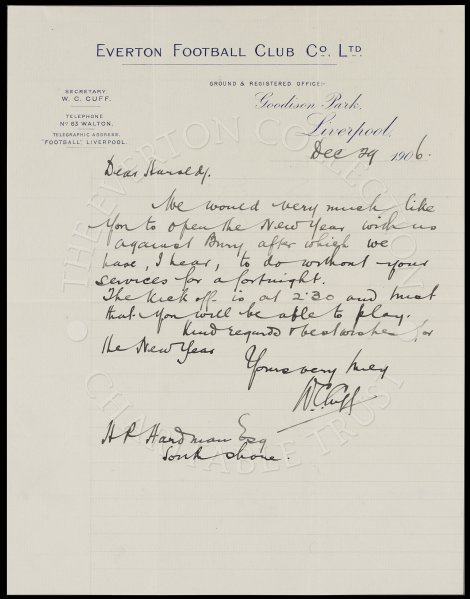 EVERTON FOOTBALL CLUB CO. LTD
SECRETARY
W. C. CUFF.
TELEPHONE
No 63 WALTON.
TELEGRAPHIC ADDRESS,
"FOOTBALL" LIVERPOOL.
GROUND & REGISTERED OFFICE:-
Goodison Park,
Liverpool,
Dec 29 1906.
Dear Harold,
We would very much like
you to open the New Year with us
against Bury after which we
have, I hear, to do without your
services for a fortnight.
The kick off is at 2.30 and trust
that you will be able to play.
Kind regards & best wishes for
the New Year
Yours very truly
W.C. Cuff
H P Hardman Esq
South Shore.
© THE EVERTON COLLECTION
CHARITABLE TRUST